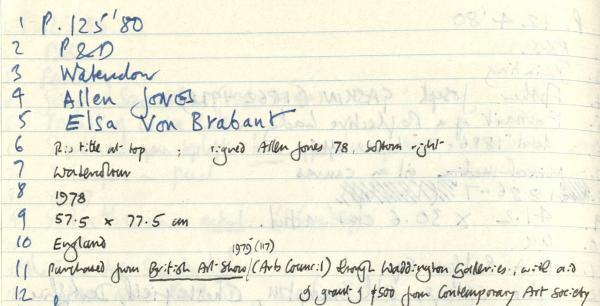 1 P. 125'80
2 P&D
3 Watercolour
4 Allen Jones
5 Elsa Von Brabant
6 His title at top ; signed Allen Jones 78, bottom right
7 Watercolour
8 1978
9 57.5 x 77.5 cm
10 England
1979 (117)
11 Purchased from British Art Show (Arts Council) through Waddington Galleries, with aid
12 of grant of £500 from Contemporary Art Society